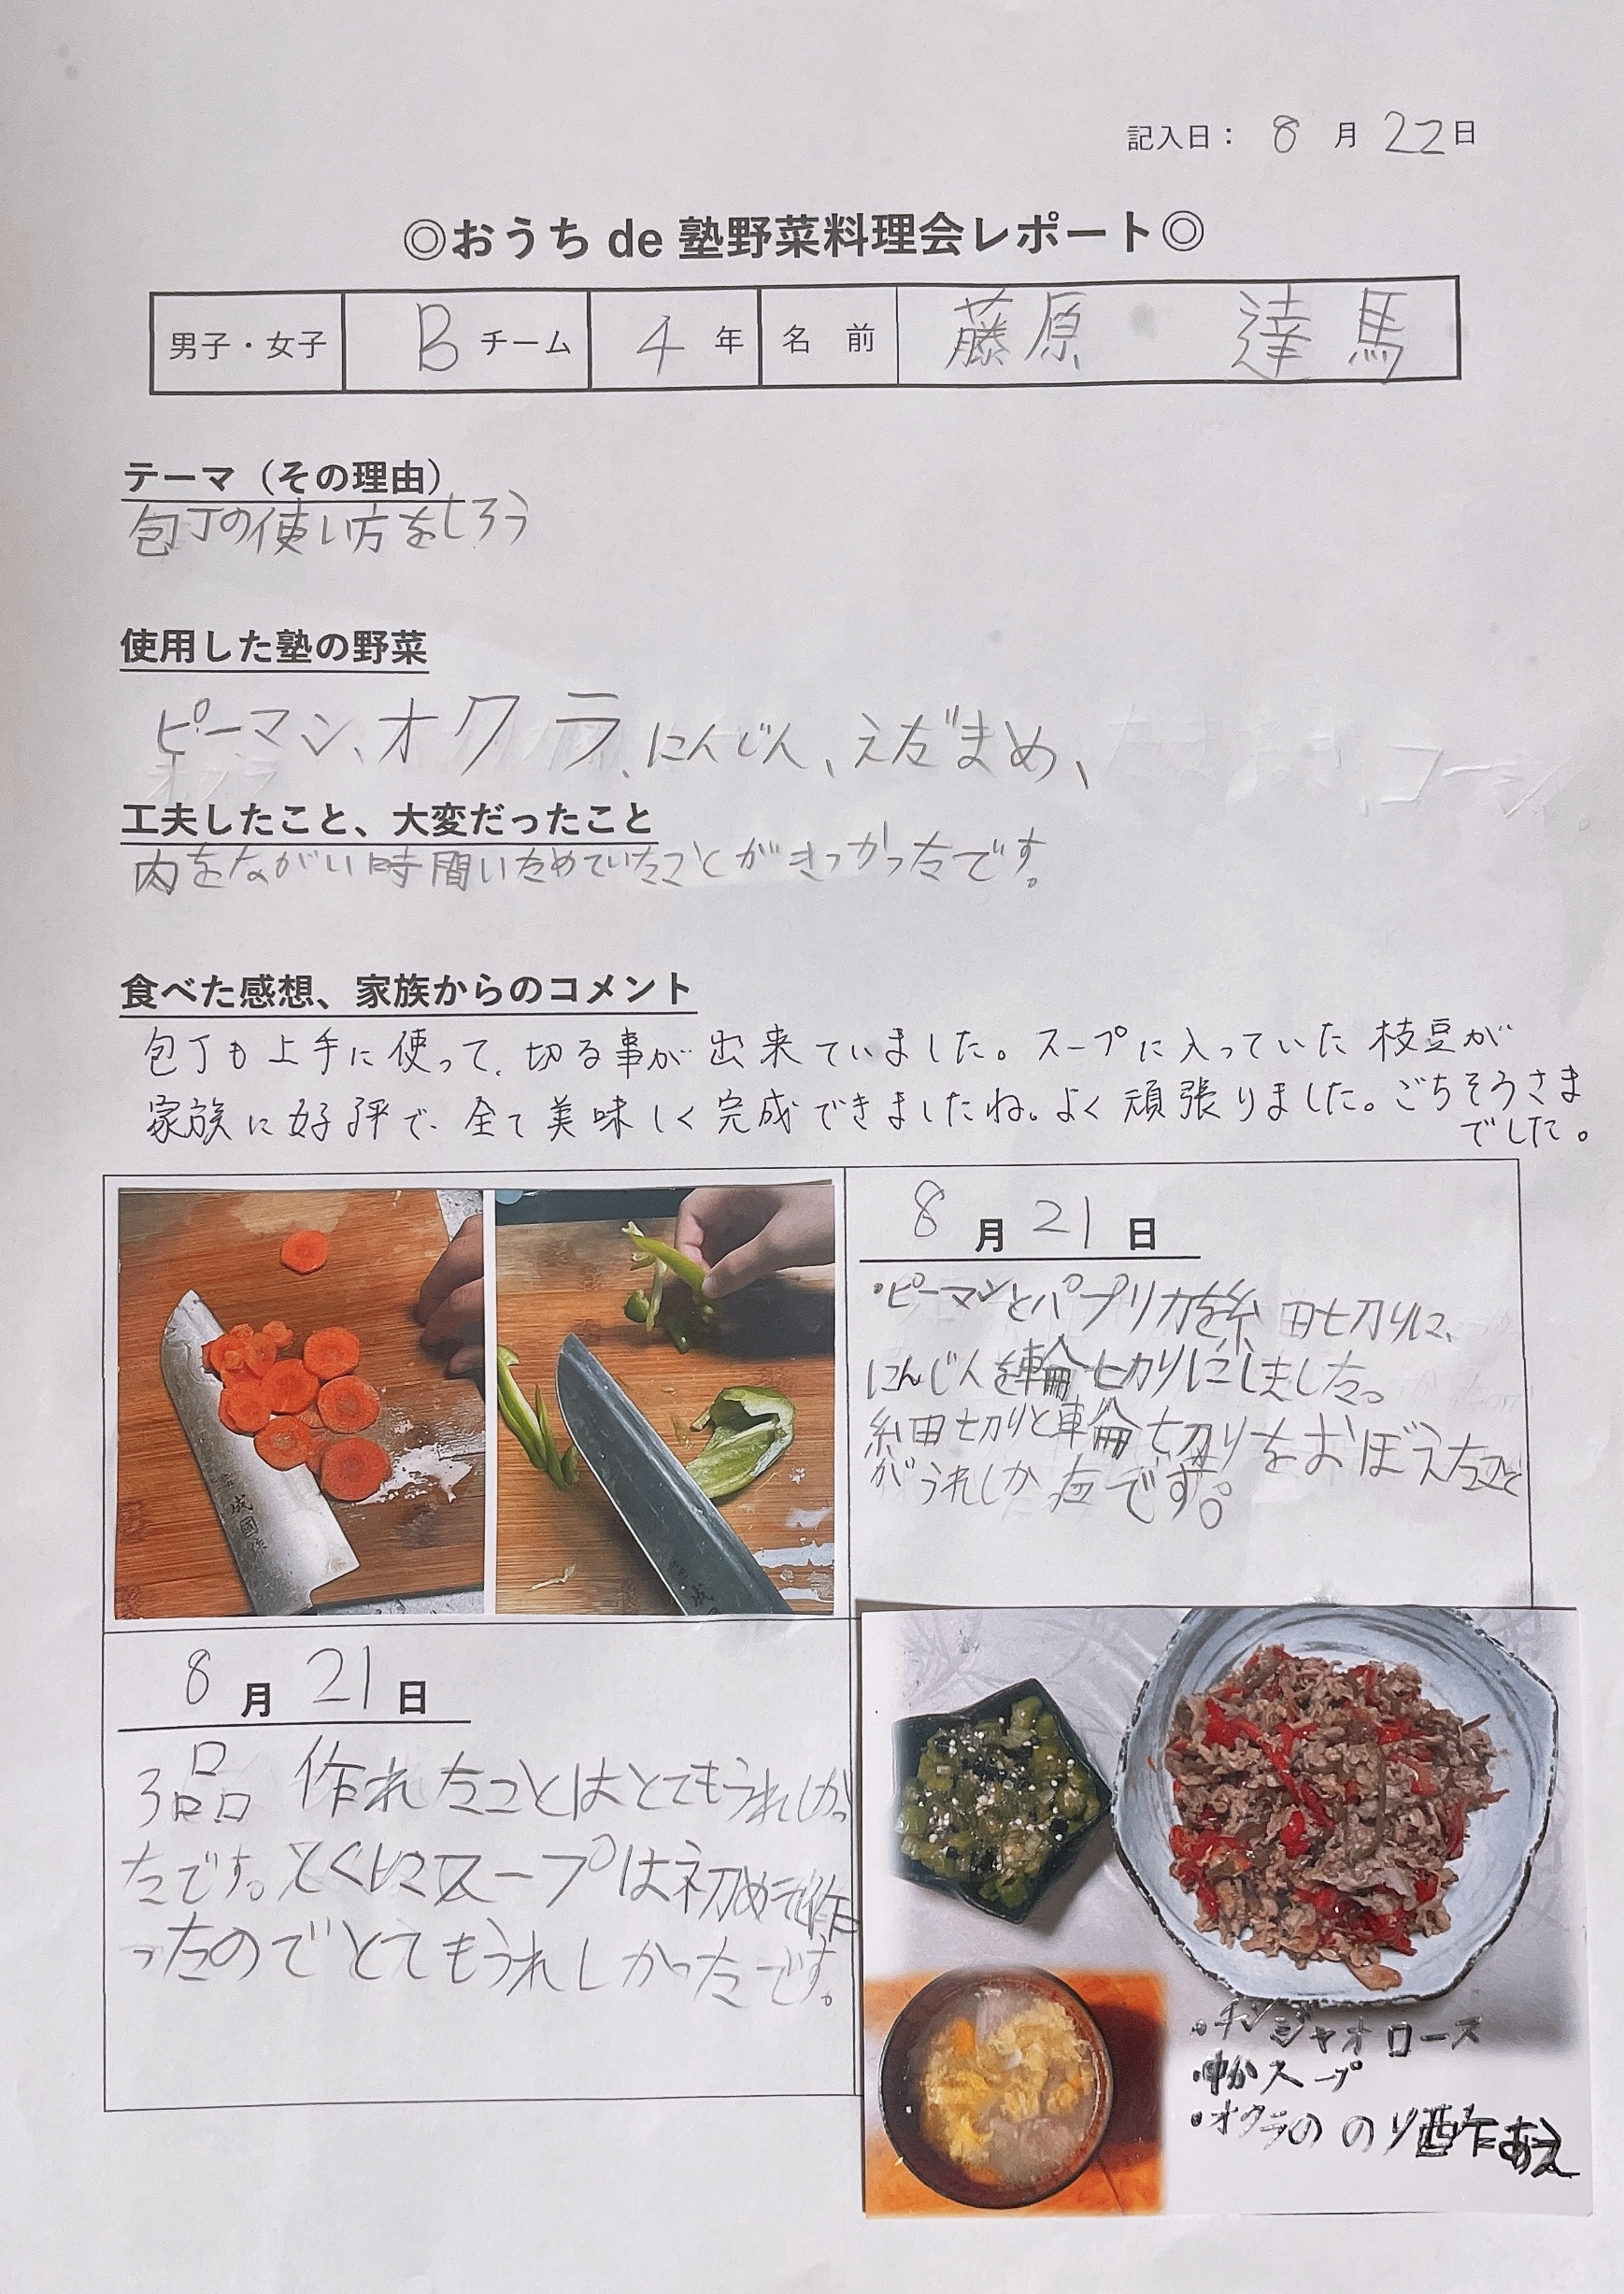 記入日： 8 月 22 日
◎おうち de 塾野菜料理会レポート◎
男子・女子 B チーム 4 年 名 前 藤原 達馬
テーマ（その理由）
包丁の使い方をしろう
使用した塾の野菜
ピーマン、オクラ、にんじん、えだまめ、
工夫したこと、大変だったこと
肉をながい時間いためていたことがきつかったです。
食べた感想、家族からのコメント
包丁も上手に使って、切る事が出来ていました。スープに入っていた枝豆が
家族に好評で、全て美味しく完成できましたね。よく頑張りました。ごちそうさま
でした。
8 月 21 日
・ピーマンとパプリカを細切りに、
にんじんを輪切りにしました。
細切りと輪切りをおぼえたこと
がうれしかたです。
8 月 21 日
3品 作れたことはとてもうれしかっ
たです。とくにスープは初めて作
ったのでとてもうれしかったです。
成國作
・チンジャオロース
・中かスープ
・オクラののり酢あえ